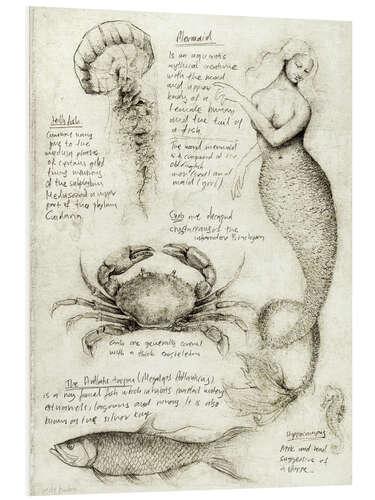 Mermaid
Is an aquatic
mythical creature
with the head
and upper
body of a
female human
and the tail of
a fish
The word mermaid
is a compound of the
old english
mere (sea) and
maid (girl)
Jellyfish
Common
to the
medusa phase
of certain
of the
Medusozoa a
part of the phylum
Cnidaria
Crabs are decapod
crustaceans of the
infraorder Brachyura
Crabs are generally covered
with a thick exoskeleton
The Atlantic tarpon (Megalops Atlanticus)
is a ray finned fish which inhabits coastal waters
estuaries lagoons and rivers. It is also
known as the silver king
Hippocampus
Neck and head
suggestive of
a horse